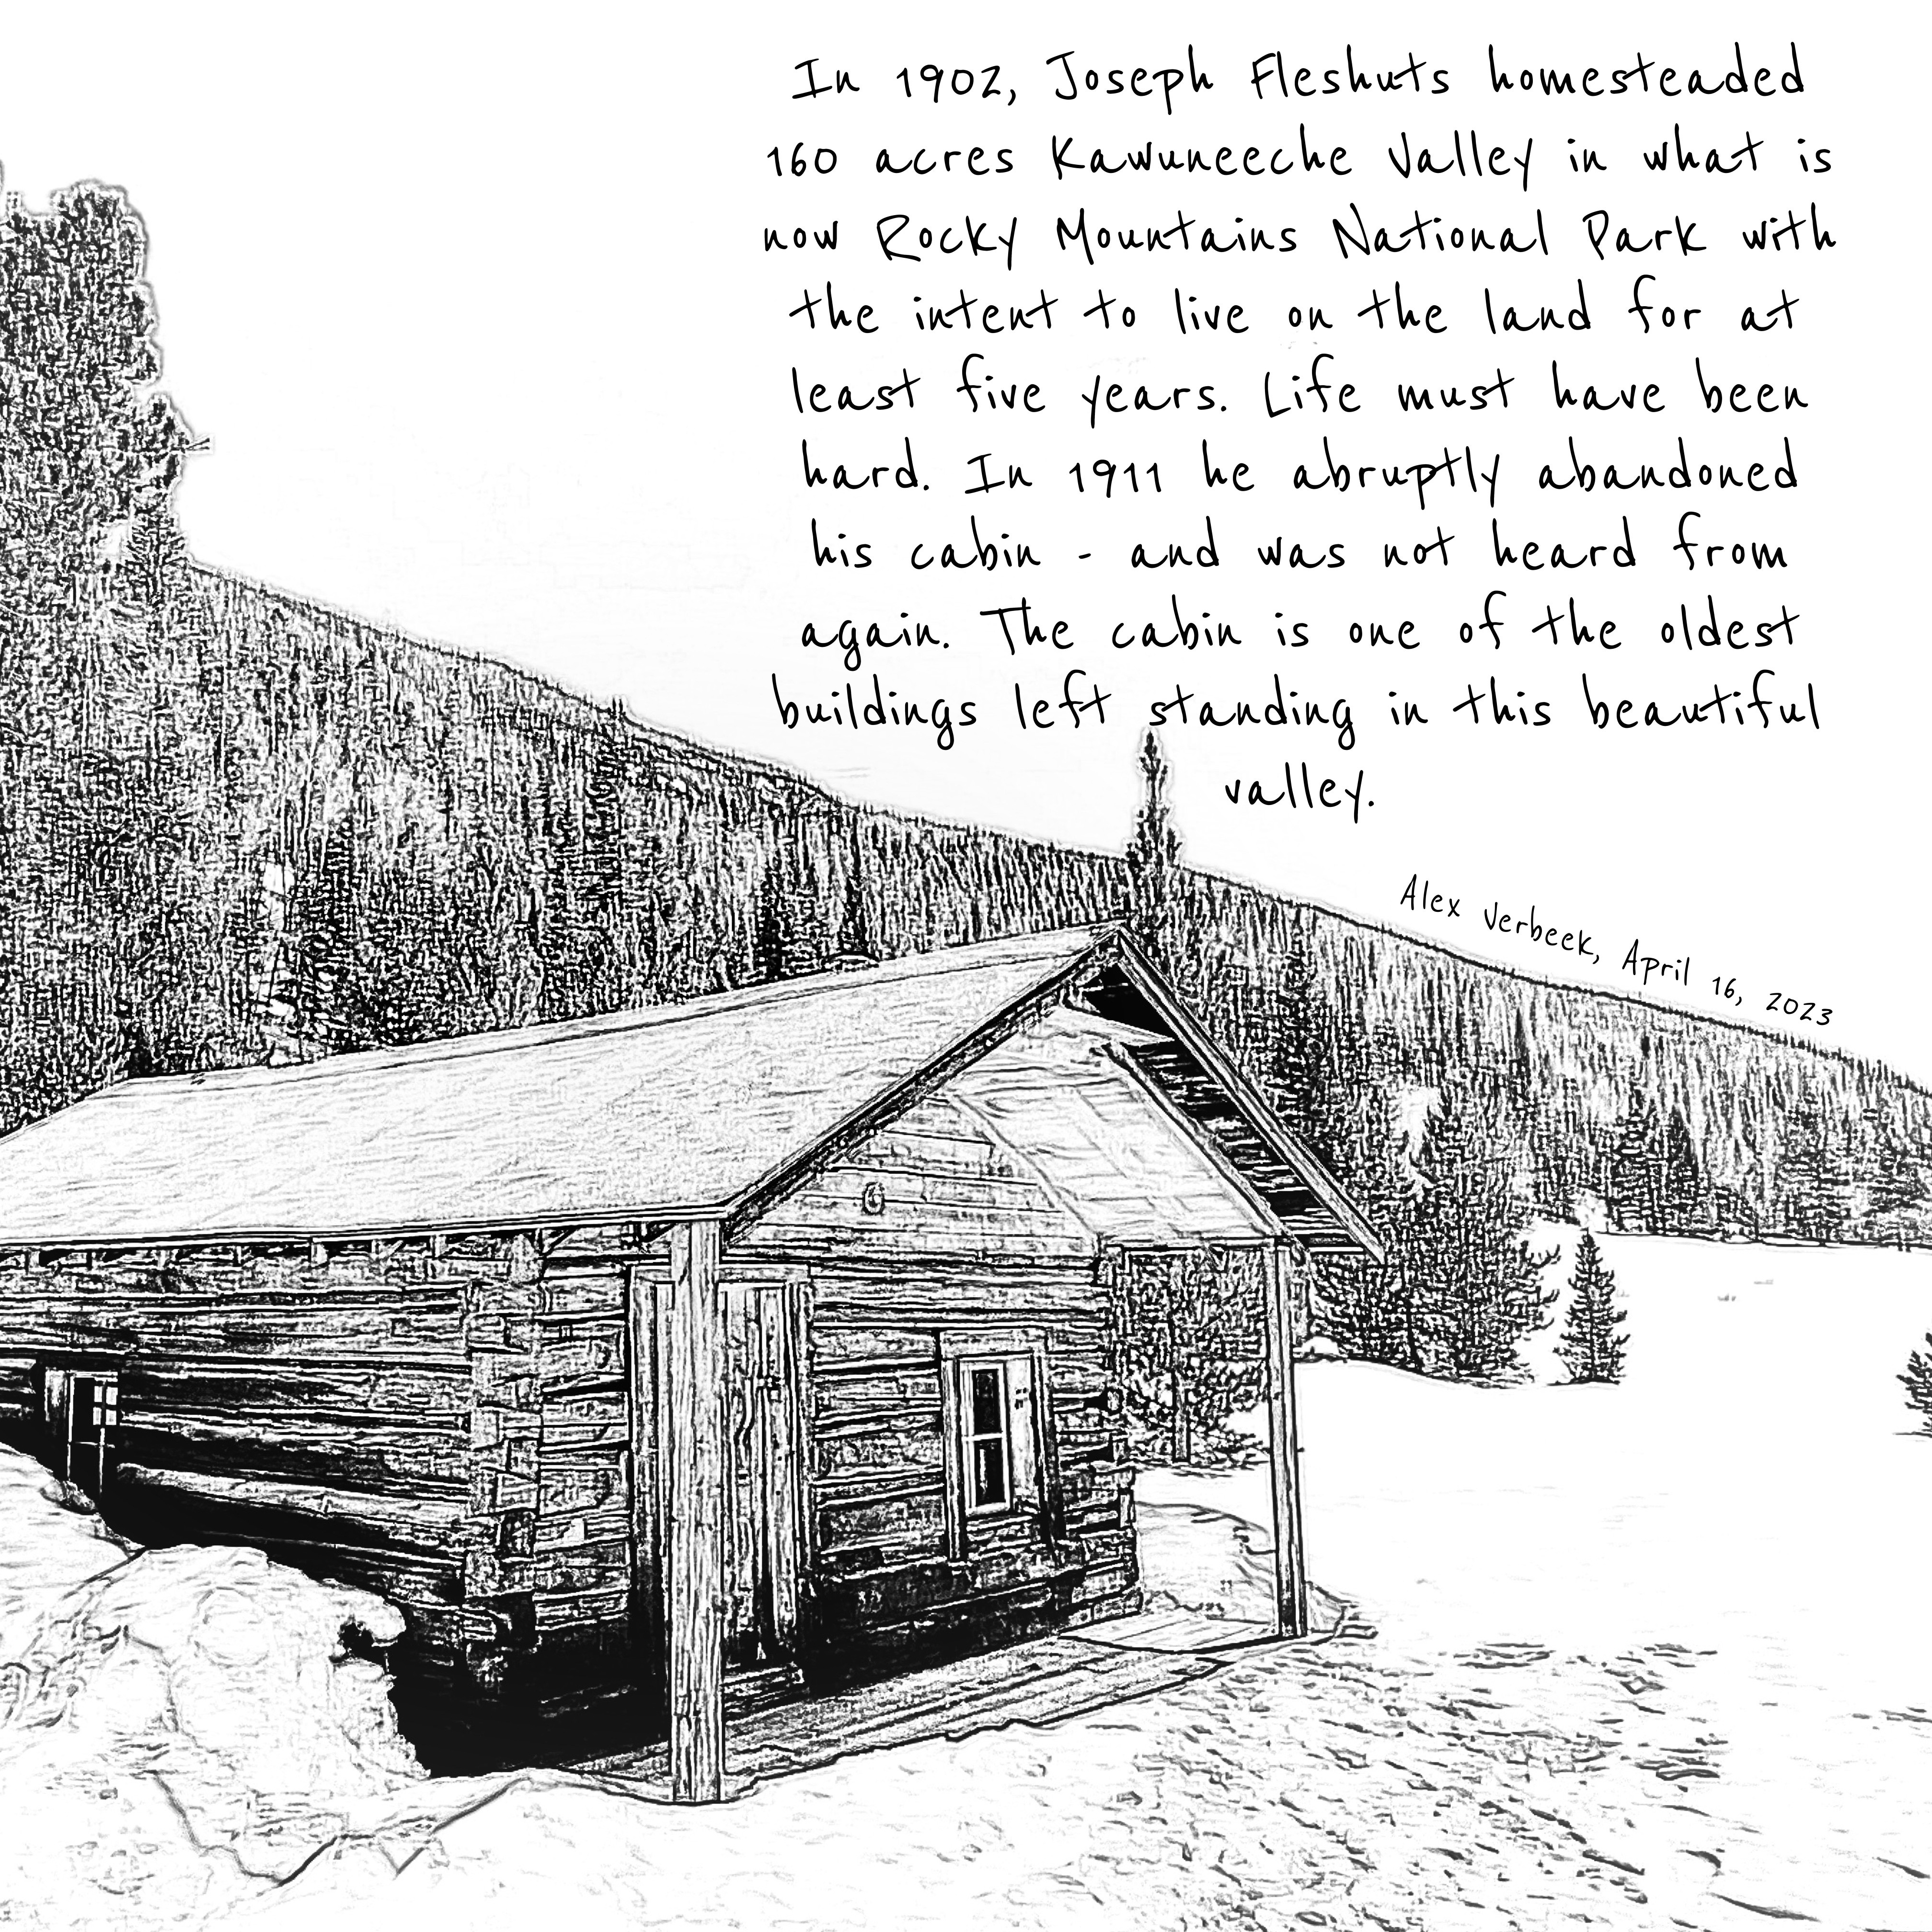 In 1902, Joseph Fleshuts homesteaded
160 acres Kawuneeche Valley in what is
now Rocky Mountains National Park with
the intent to live on the land for at
least five years. Life must have been
hard. In 1911 he abruptly abandoned
his cabin - and was not heard from
again. The cabin is one of the oldest
buildings left standing in this beautiful
valley.
Alex Verbeek, April 16, 2023